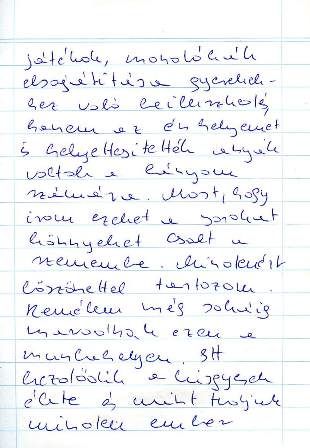 játékok, mondókák
elsajátítása gyerekek-
hez való beilleszkedés,
hanem az én helyemet
is helyettesítették anyák
voltak a lányom
számára. Most, hogy
írom ezeket a sorokat
könnyeket csalt a
szemembe. Mindenért
köszönettel tartozom.
Remélem még sokáig
maradhat ezen a
munkahelyen. Itt
kezdődik a kisgyerek
élete és mint tudjuk
minden ember